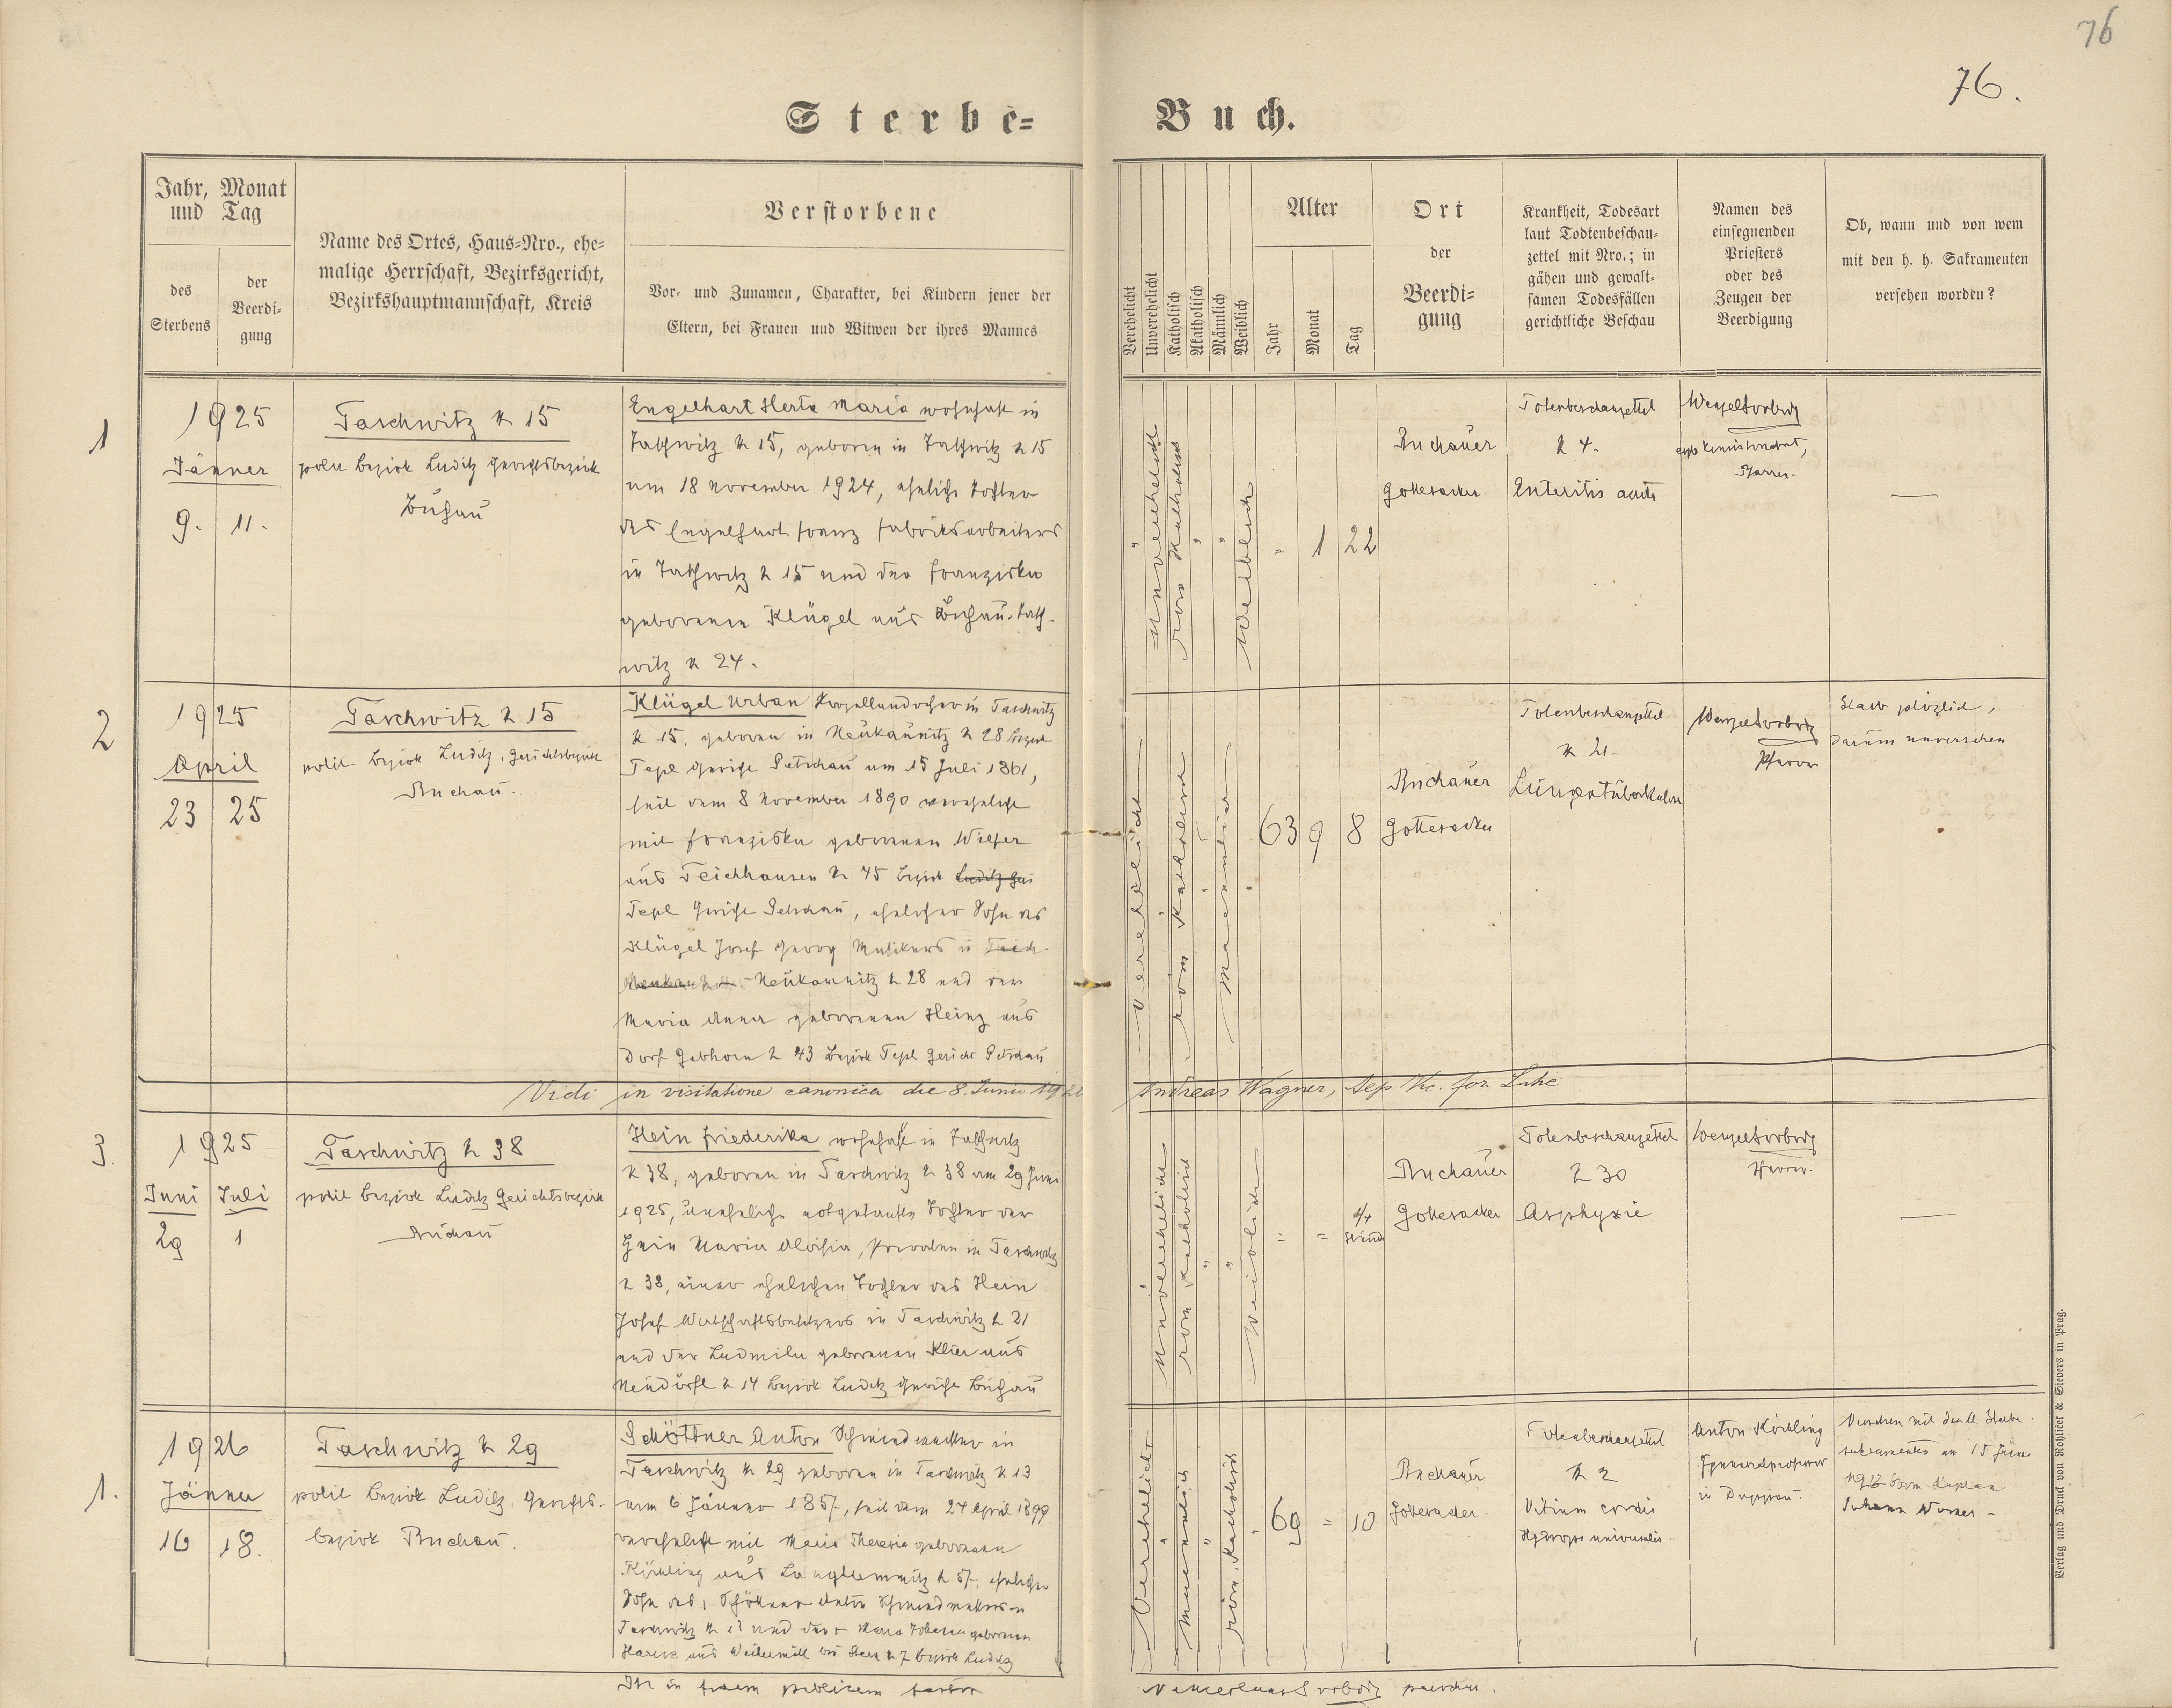 76
76.
Sterbe-Buch.
Jahr, Monat
und Tag
des
Sterbens
der
Beerdi-
gung
Name des Ortes, Haus-Nro., ehe-
malige Herrschaft, Bezirksgericht,
Bezirkshauptmannschaft, Kreis
Verstorbene
Vor- und Zunamen, Charakter, bei Kindern jener der
Eltern, bei Frauen und Witwen der ihres Mannes
Verehelicht
Unverehelicht
Katholisch
Akatholisch
Männlich
Weiblich
Alter
Jahr
Monat
Tag
Ort
der
Beerdi-
gung
Krankheit, Todesart
laut Todtenbeschau-
zettel mit Nro.; in
gähen und gewalt-
samen Todesfällen
gerichtliche Beschau
Namen des
einsegnenden
Priesters
oder des
Zeugen der
Beerdigung
Ob, wann und von wem
mit den h. h. Sakramenten
versehen worden?
1
1925
Jänner
9. 11.
Taschwitz N 15
polit Bezirk Luditz Gerichtsbezirk
Buchau
Engelhart Herta Maria wohnhaft in
Taschwitz N 15, geboren in Taschwitz N 15
am 18 November 1924, eheliche Tochter
des Engelhart Franz Fabriksarbeiters
in Taschwitz N 15 und der Franziska
geborenen Klügel aus Buchau-Tasch-
witz N 24.
Unverehelicht
röm Katholisch
Weiblich
1 22
Buchauer
Gottesacker
Totenbeschauzettel
N 4.
Enteritis acuta
Wenzel Svoboda
Pfarrer
—
2
1925
April
23 25
Taschwitz N 15
polit Bezirk Luditz, Gerichtsbezirk
Buchau.
Klügel Urban Porzellandreher in Taschwitz
N 15, geboren in Neukaunitz N 28 Bezirk
Tepl Gericht Petschau am 15 Juli 1861,
seit dem 8 November 1890 verehelicht
mit Franziska geborenen
aus Teichhausen N 45 Bezirk Luditz Ger
Tepl Gericht Petschau, ehelicher Sohn des
Klügel Josef Georg Musikers in Teich
Neukaunitz N 28 und der
Maria Anna geborenen Heinz aus
Dorf Gebhorn N 43 Bezirk Tepl Gericht Petschau
verehelicht
röm Katholisch
Maennlich
63 9 8
Buchauer
Gottesacker
Totenbeschauzettel
N 21
Lungentuberkulose
Wenzel Svoboda
Pfarrer
Starb plözlich,
darum unversehen
Vidi in visitatione canonica die 8. Junii 1926 Andreas Wagner,
3.
1925
Juni Juli
29 1
Taschwitz N 38
polit Bezirk Luditz Gerichtsbezirk
Buchau
Hein Friederika wohnhaft in Taschwitz
N 38, geboren in Taschwitz N 38 am 29 Juni
1925, uneheliche notgetaufte Tochter der
Hein Maria Aloisia, Privaten in Taschwitz
N 38, einer ehelichen Tochter des Hein
Josef Wirtschaftsbesitzers in Taschwitz N 21
und der Ludmila geborenen Klier aus
Neudörfl N 14 Bezirk Luditz Gericht Buchau
Unverehelicht
röm Katholisch
Weiblich
Buchauer
Gottesacker
Totenbeschauzettel
N 30
Asphyxie
Wenzel Svoboda
Pfarrer.
—
1.
1926
Jänner
16 18.
Taschwitz N 29
polit Bezirk Luditz, Gerichts-
bezirk Buchau.
Schöttner Anton Schmiedmeister in
Taschwitz N 29 geboren in Taschwitz N 13
am 6 Jänner 1857, seit dem 27 April 1899
verehelicht mit Maria Theresia geborenen
Körbling aus Langlammitz N 57, ehelicher
Sohn des Schöttner Anton Schmiedmeisters in
Taschwitz N 13 und der Maria geborenen
aus N 7 Bezirk Luditz
Verehelicht
Maennlich
röm. Katholisch
69 10
Buchauer
Gottesacker.
Totenbeschauzettel
N 2
Vitium cordis
Hydrops universalis.
Anton Körbling
in Duppau.
Versehen mit den hl Sterbe-
sakramenten am 15 Jänner
1926 vom Kaplan
Johann
in fidem publicam
Wenceslaus Svoboda parochus.
Verlag und Druck von Rohlicek & Sievers in Prag.